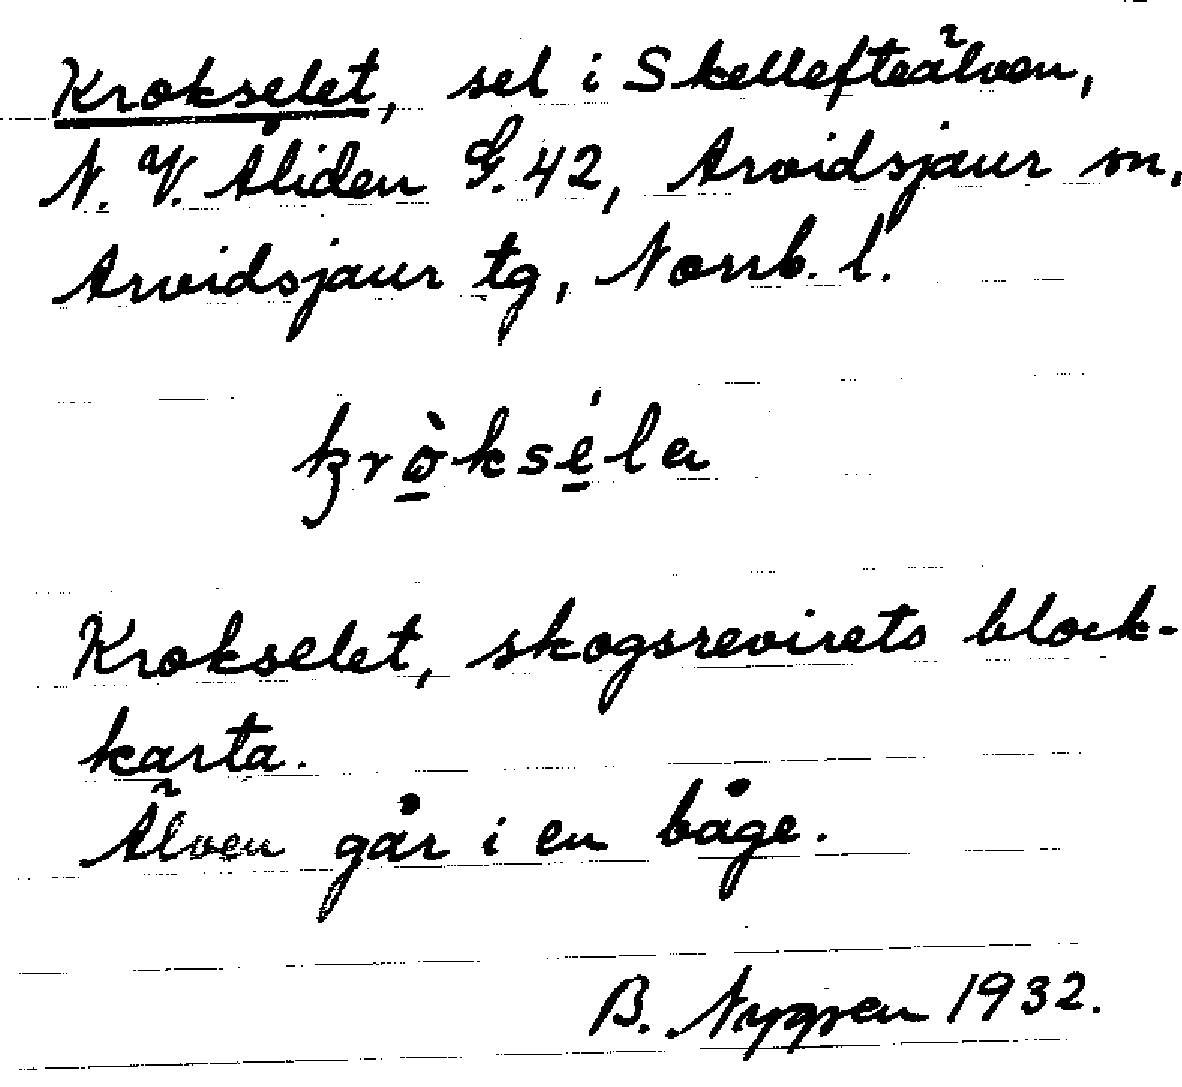 Krokselet, sel i Skellefteälven,
N.V. Åliden G.42, Arvidsjaur sn,
Arvidsjaur tg, Norrb. l.
krò̱kse̱̍la
Krokselet, skogsrevirets block-
karta.
Älven går i en båge.
B. Nygren 1932.